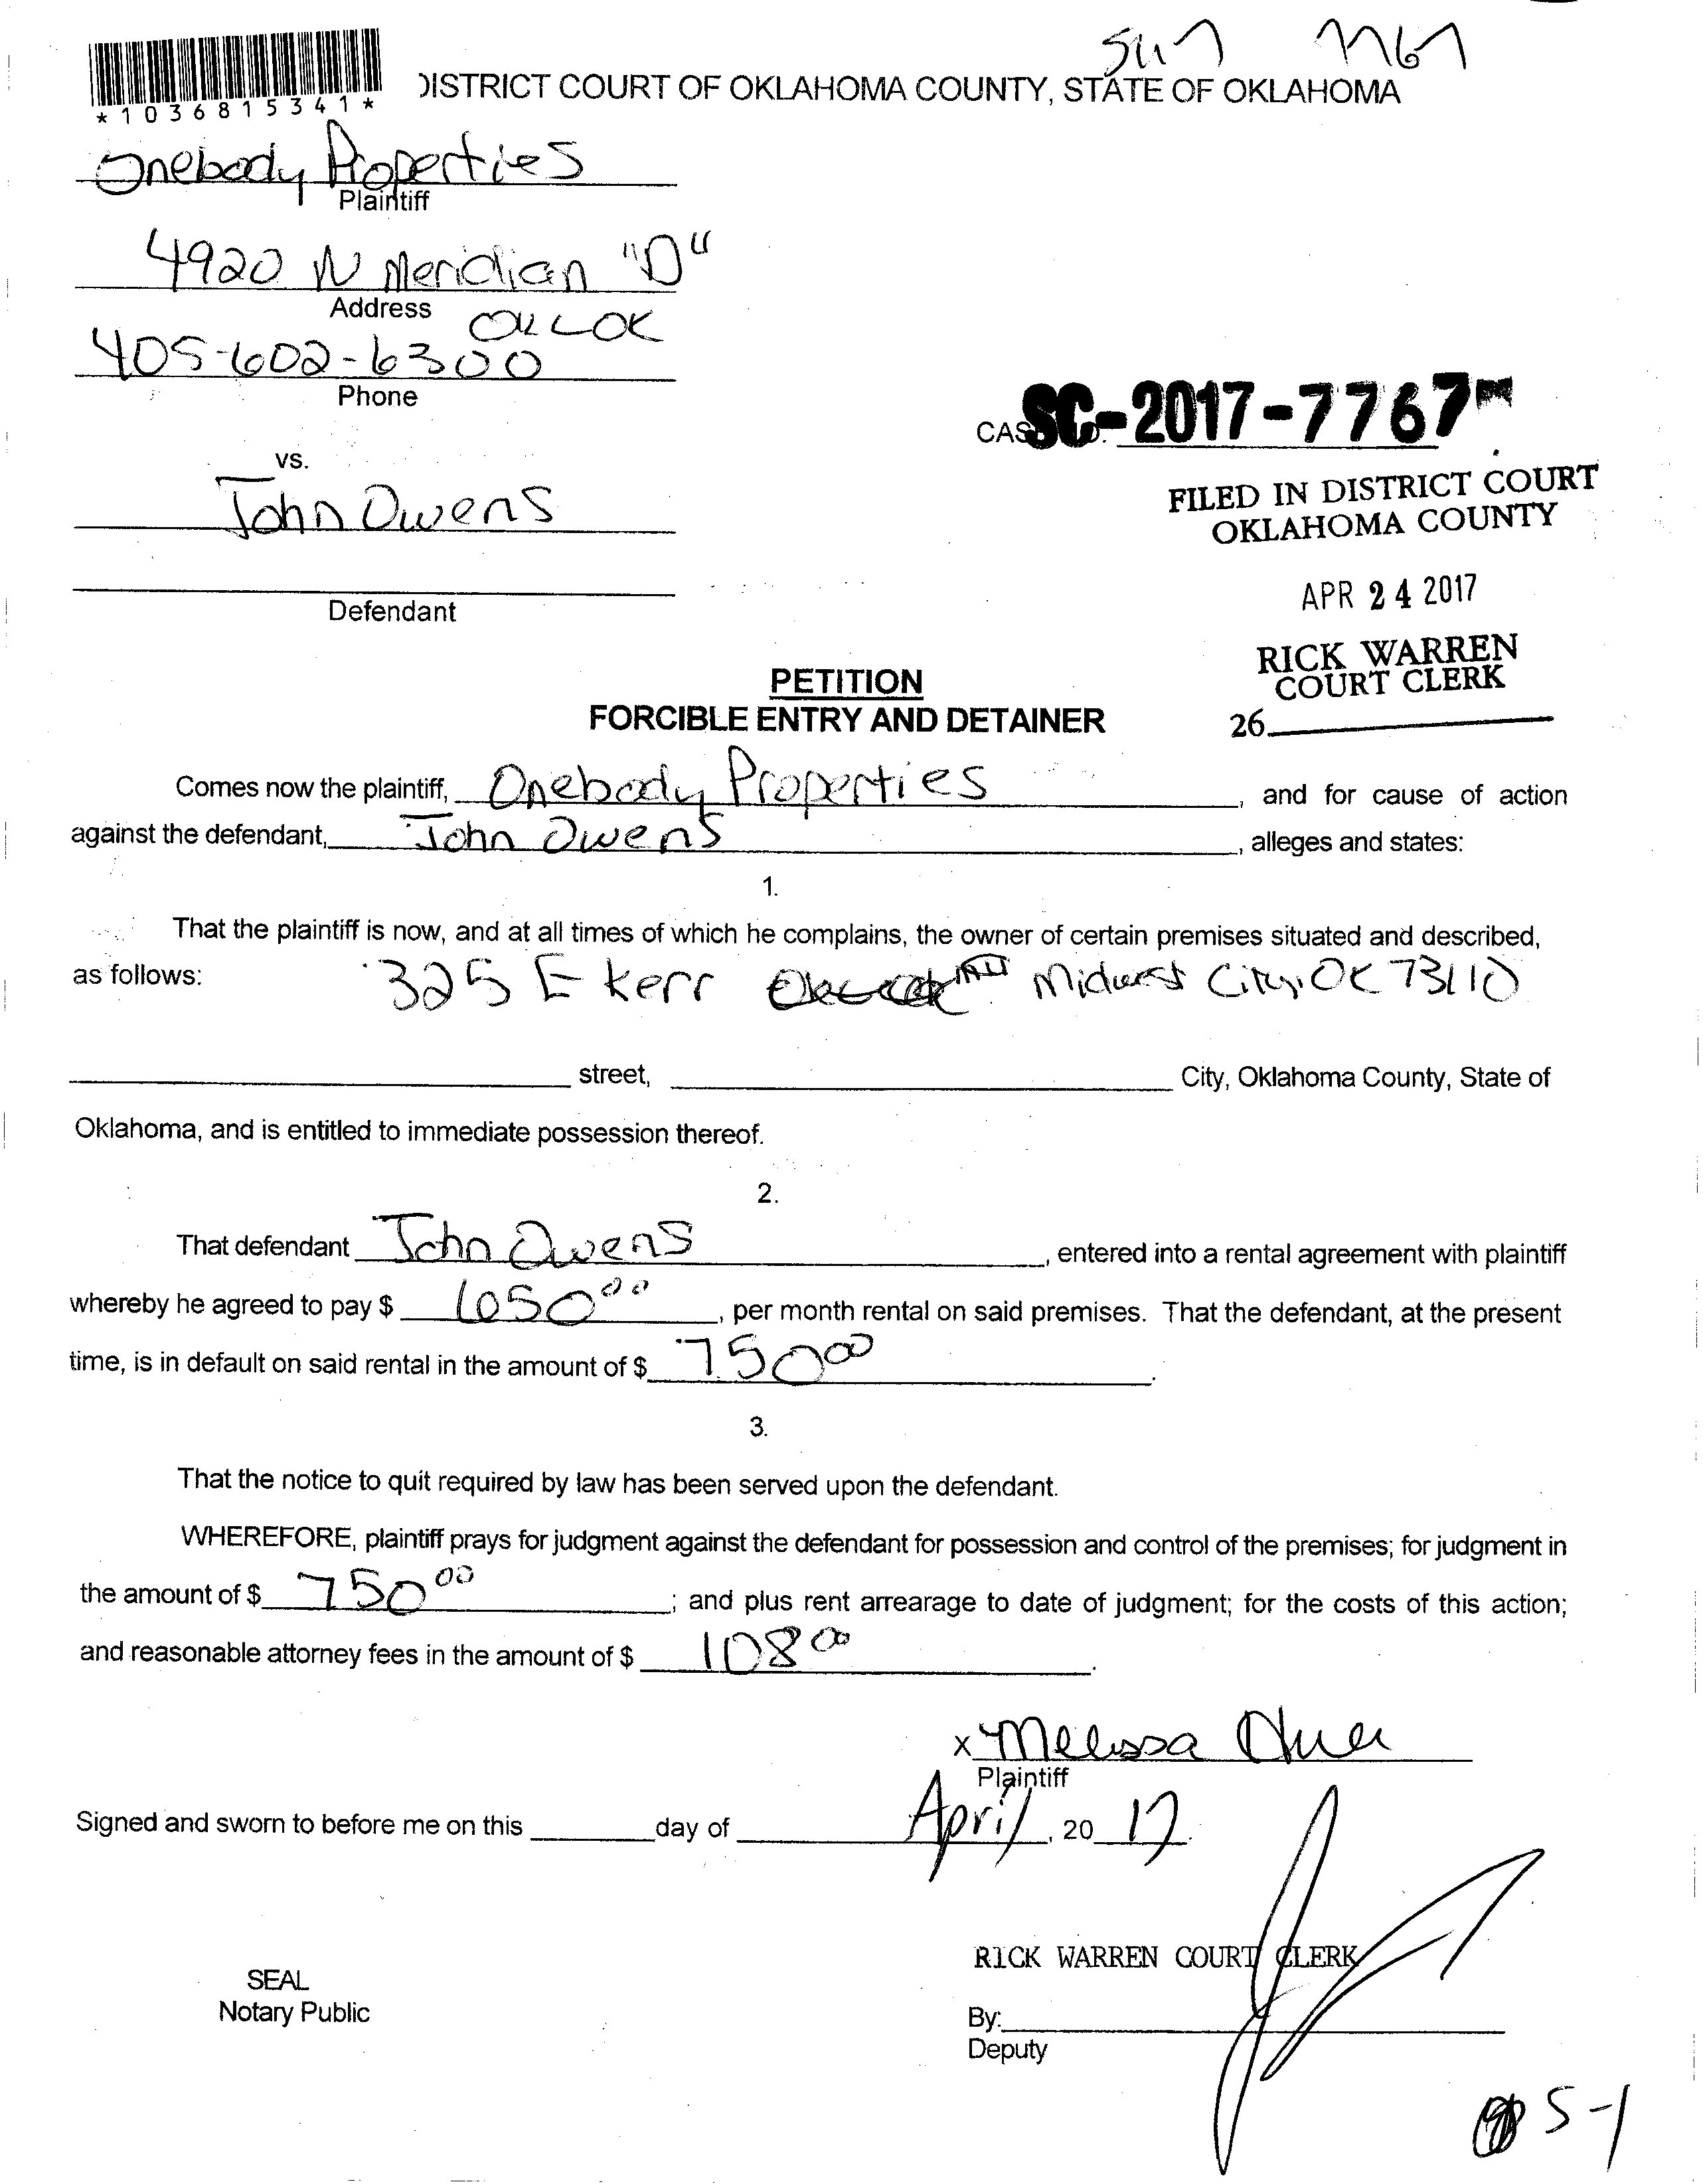 *1036815341*
DISTRICT COURT OF OKLAHOMA COUNTY, STATE OF OKLAHOMA
Onebody Properties
Plaintiff
4920 N Meridian "D"
Address
405-602-6300
Phone
SC-2017-7767
vs.
John Owens
FILED IN DISTRICT COURT
OKLAHOMA COUNTY
APR 24 2017
Defendant
RICK WARREN
COURT CLERK
26
PETITION
FORCIBLE ENTRY AND DETAINER
Comes now the plaintiff, Onebody Properties, and for cause of action
against the defendant, John Owens, alleges and states:
1.
That the plaintiff is now, and at all times of which he complains, the owner of certain premises situated and described,
as follows: 325 E Kerr Midwest City, OK 73110
street, City, Oklahoma County, State of
Oklahoma, and is entitled to immediate possession thereof.
2.
That defendant John Owens, entered into a rental agreement with plaintiff
whereby he agreed to pay $ 650 00, per month rental on said premises. That the defendant, at the present
time, is in default on said rental in the amount of $ 750 00.
3.
That the notice to quit required by law has been served upon the defendant.
WHEREFORE, plaintiff prays for judgment against the defendant for possession and control of the premises; for judgment in
the amount of $ 750 00; and plus rent arrearage to date of judgment; for the costs of this action;
and reasonable attorney fees in the amount of $ 108 00.
x Melissa
Plaintiff
Signed and sworn to before me on this day of April, 20 17.
RICK WARREN COURT CLERK
SEAL
Notary Public
By:
Deputy
5-1